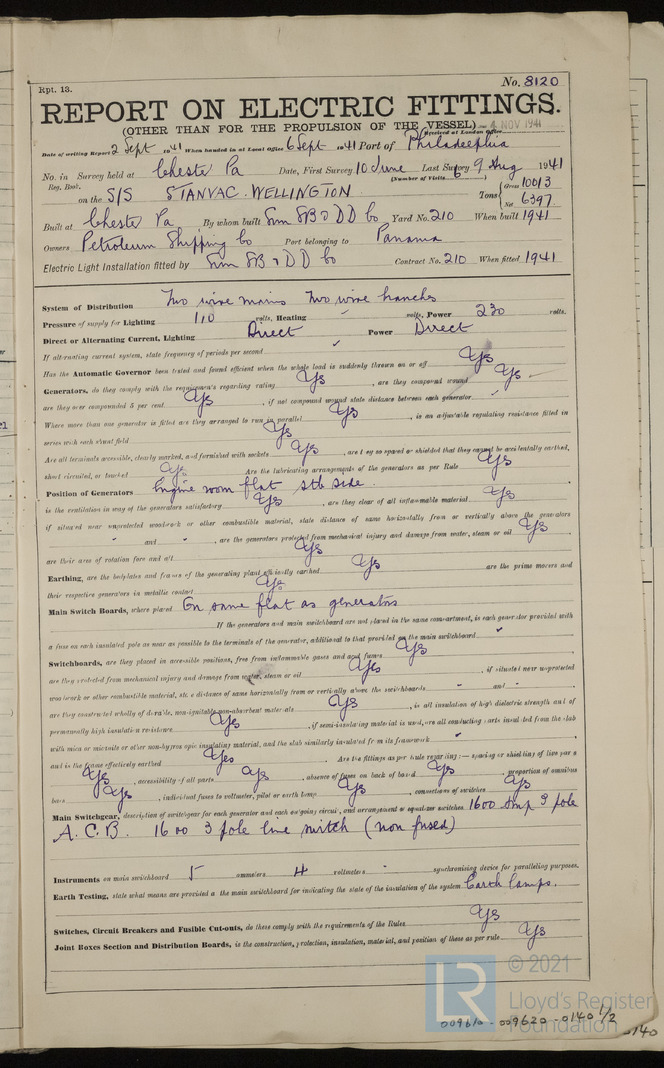 Rpt. 13.
No. 8120
REPORT ON ELECTRIC FITTINGS.
(OTHER THAN FOR THE PROPULSION OF THE VESSEL)
Received at London Office 4 NOV 1941
Date of writing Report 2 Sept 1941 When handed in at Local Office 6 Sept 1941 Port of Philadelphia
No. in Survey held at Chester Pa Date, First Survey 10 June Last Survey 9 Aug 1941
Reg. Book. (Number of Visits 6)
on the S/S STANVAC WELLINGTON Tons { Gross 10013
Net 6397
Built at Chester Pa By whom built Sun SB & DD Co Yard No. 210 When built 1941
Owners Petroleum Shipping Co Port belonging to Panama
Electric Light Installation fitted by Sun SB & DD Co Contract No. 210 When fitted 1941
System of Distribution Two wire mains Two wire branches
Pressure of supply for Lighting 110 volts, Heating volts, Power 230 volts.
Direct or Alternating Current, Lighting Direct Power Direct
If alternating current system, state frequency of periods per second
Has the Automatic Governor been tested and found efficient when the whole load is suddenly thrown on or off Yes
Generators, do they comply with the requirements regarding rating Yes, are they compound wound Yes
are they over compounded 5 per cent. Yes, if not compound wound state distance between each generator
Where more than one generator is fitted are they arranged to run in parallel Yes, is an adjustable regulating resistance fitted in
series with each shunt field Yes
Are all terminals accessible, clearly marked, and furnished with sockets Yes, are they so spaced or shielded that they cannot be accidentally earthed,
short circuited, or touched Yes Are the lubricating arrangements of the generators as per Rule Yes
Position of Generators Engine room flat stb side.
is the ventilation in way of the generators satisfactory Yes, are they clear of all inflammable material Yes
if situated near unprotected woodwork or other combustible material, state distance of same horizontally from or vertically above the generators
" and ", are the generators protected from mechanical injury and damage from water, steam or oil Yes
are their axes of rotation fore and aft Yes
Earthing, are the bedplates and frames of the generating plant efficiently earthed Yes are the prime movers and
their respective generators in metallic contact Yes
Main Switch Boards, where placed On same flat as generators
If the generators and main switchboard are not placed in the same compartment, is each generator provided with
a fuse on each insulated pole as near as possible to the terminals of the generator, additional to that provided on the main switchboard
Switchboards, are they placed in accessible positions, free from inflammable gases and acid fumes Yes
are they protected from mechanical injury and damage from water, steam or oil Yes, if situated near unprotected
woodwork or other combustible material, state distance of same horizontally from or vertically above the switchboards " and "
are they constructed wholly of durable, non-ignitable non-absorbent materials Yes, is all insulation of high dielectric strength and of
permanently high insulation resistance Yes, if semi-insulating material is used, are all conducting parts insulated from the slab
with mica or micanite or other non-hygroscopic insulating material, and the slab similarly insulated from its framework
and is the frame effectively earthed Yes. Are the fittings as per rule regarding:— spacing or shielding of live parts
Yes, accessibility of all parts Yes, absence of fuses on back of board Yes, proportion of omnibus
bars Yes, individual fuses to voltmeter, pilot or earth lamp Yes, connections of switches Yes
Main Switchgear, description of switchgear for each generator and each outgoing circuit, and arrangement of equalizer switches 1600 amp 3 pole
A.C.B. 1600 3 pole line switch (non fused)
Instruments on main switchboard 5 ammeters 4 voltmeters - synchronising device for paralleling purposes.
Earth Testing, state what means are provided at the main switchboard for indicating the state of the insulation of the system Earth lamps.
Switches, Circuit Breakers and Fusible Cut-outs, do these comply with the requirements of the Rules Yes
Joint Boxes Section and Distribution Boards, is the construction, protection, insulation, material, and position of these as per rule Yes
© 2021
Lloyd's Register
Foundation
009610-009620-0140 1/2